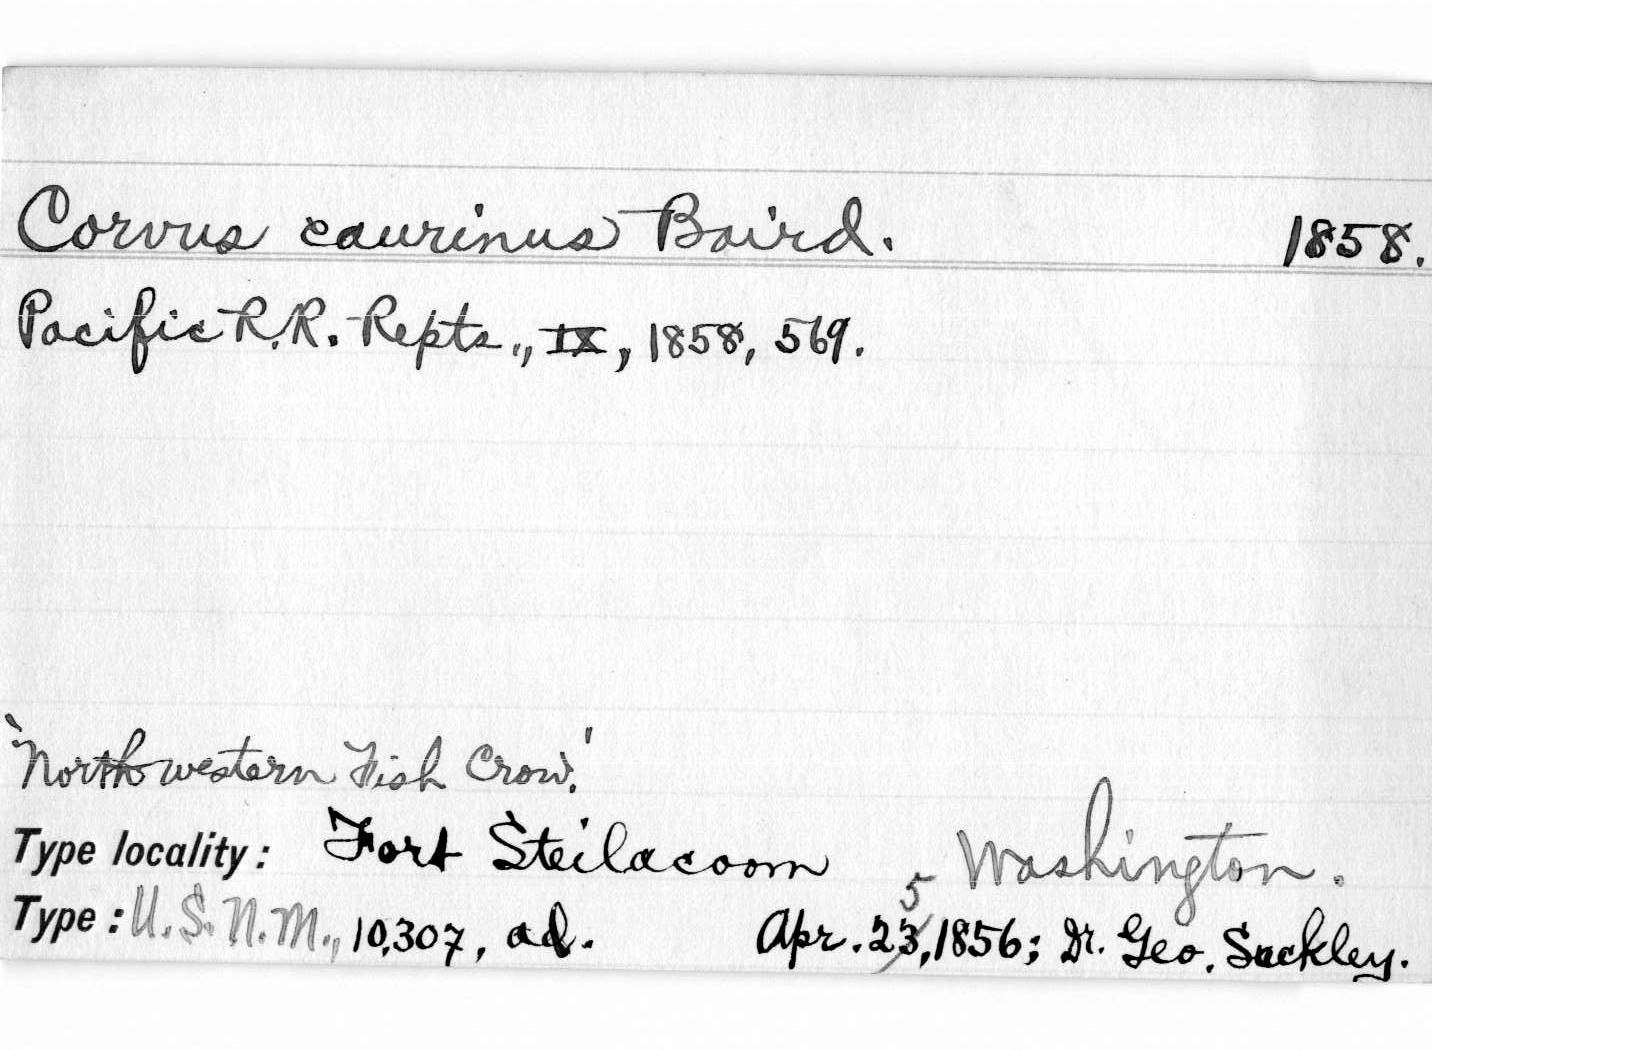 Corvus caurinus Baird. 1858.
Pacific R.R. Repts., IX, 1858, 569.
'Northwestern Fish Crow.'
Type locality: Fort Steilacoom Washington.
5
Type: U.S.N.M., 10,307, ad. Apr. 23, 1856; Dr. Geo. Suckley.